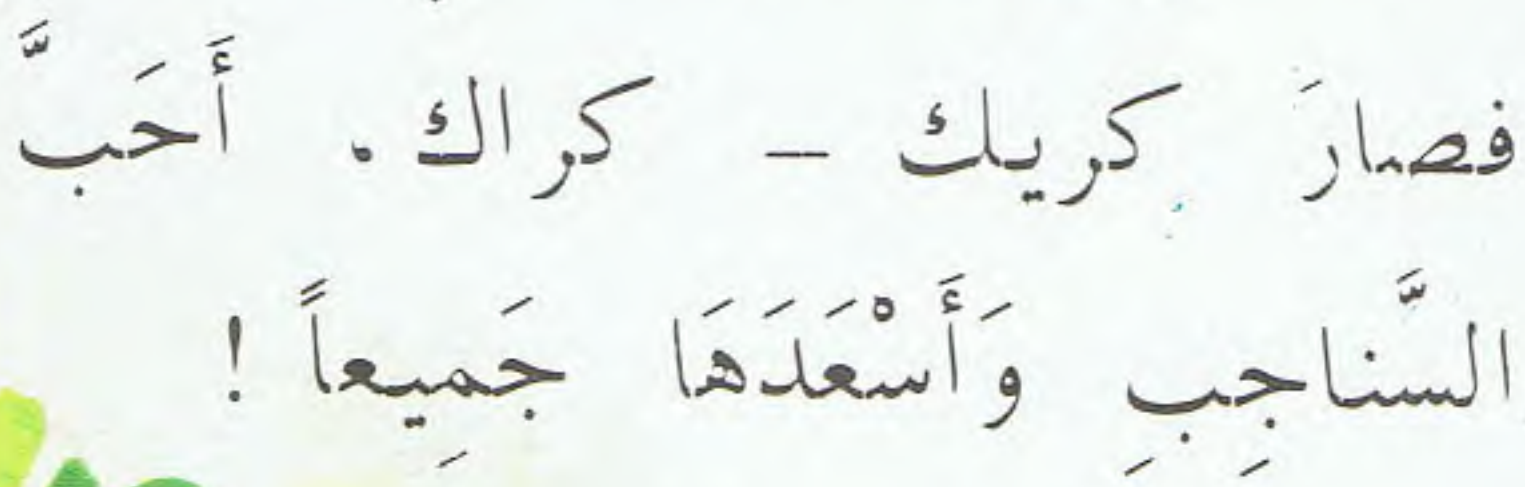 فصارَ كريك – كراك. أَحَبَّ
السَّناجِبِ وَأَسْعَدَهَا جَمِيعاً !